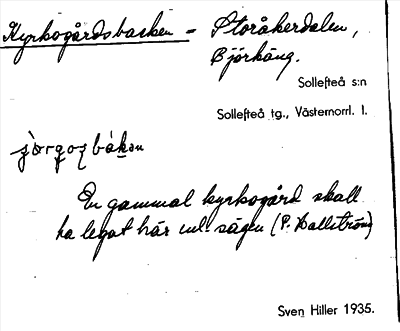 Kyrkogårdsbacken - Storåkerdalen,
Björkäng.
Sollefteå s:n
Sollefteå tg., Västernorrl. l.
En gammal kyrkogård skall
ha legat här enl sägen (P. Hallström)
Sven Hiller 1935.